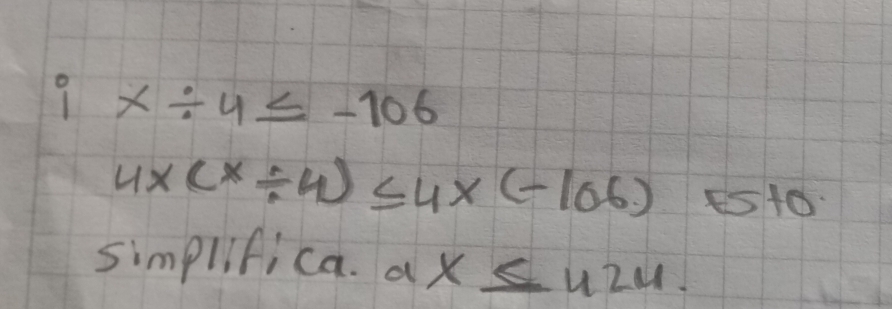 i x ÷ 4 ≤ -106
4x(x ÷ 4) ≤ 4x(-106) Esto.
simplifica. a x ≤ 424.